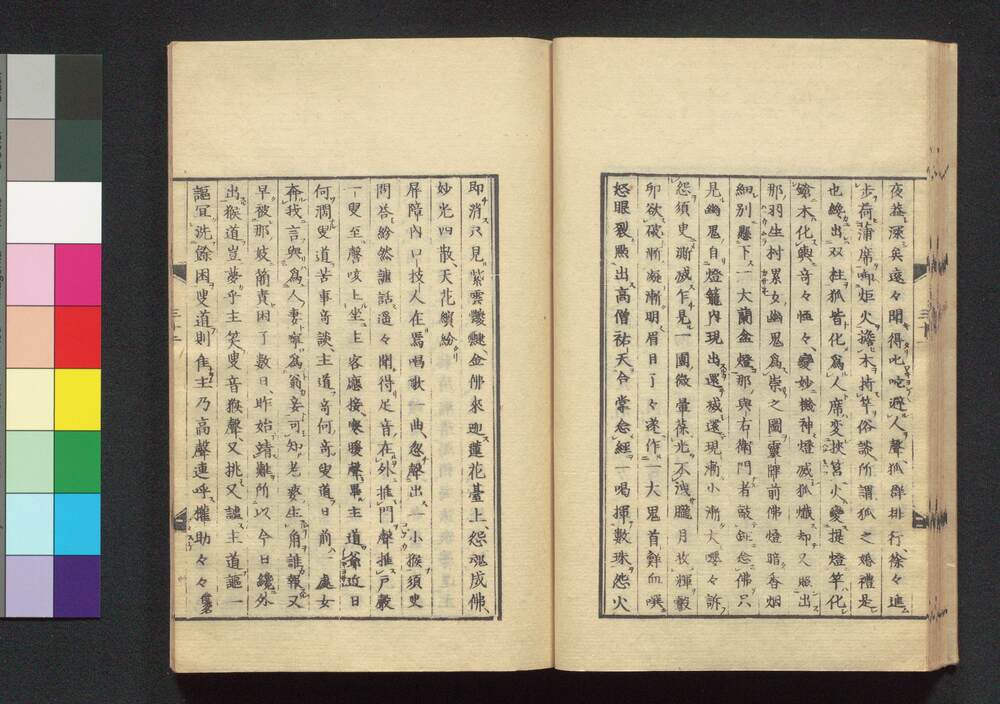 夜益深矣遠々聞得叱咤避人聲狐群排行徐々進
步荷蒲席啣炬火擔木持竿俗談所謂狐之婚禮是
也纔出双柱狐皆化爲人席變挾筥火變提燈竿化
鎗木化輿奇々恠々變妙機神燈滅狐熾却又照出
那羽生村累女幽鬼爲祟之圖靈牌前佛燈暗香烟
細別懸下一大蘭盆燈那與右衛門者敲鉦念佛只
見幽鬼自燈籠內現出還滅還現漸小漸大嚶々訴
怨須臾漸滅乍見一團微暈葆光不洩朧月收輝
卵欲破漸凝漸明眉目了々遂作一大鬼首鮮血噀
怒眼裂照出高僧祐天合掌念經一喝揮數珠怨火
即消只見紫雲靉靆金佛來迎蓮花臺上怨魂成佛
妙光四散天花繽紛
屏障內口技人在焉唱歌一曲忽聲出一小猴須臾
問答紛然謔話適々聞得足音在外推門聲推戶嚴
一叟至謦咳上坐上客應接寒暖聲畢主道爺近日
何濶叟道苦事奇談主道奇何奇叟道日前一處女
奔找言與爲人妻寧爲翁妾可知老瘗生角誰報又
早被那妓簡責困了數日昨始靖難所以今日纔外
出猴道豈夢乎主笑叟音猴聲又挑又謔主道謳一
謳冝洗餘困叟道則隹主乃高聲連呼權助々々
三十二